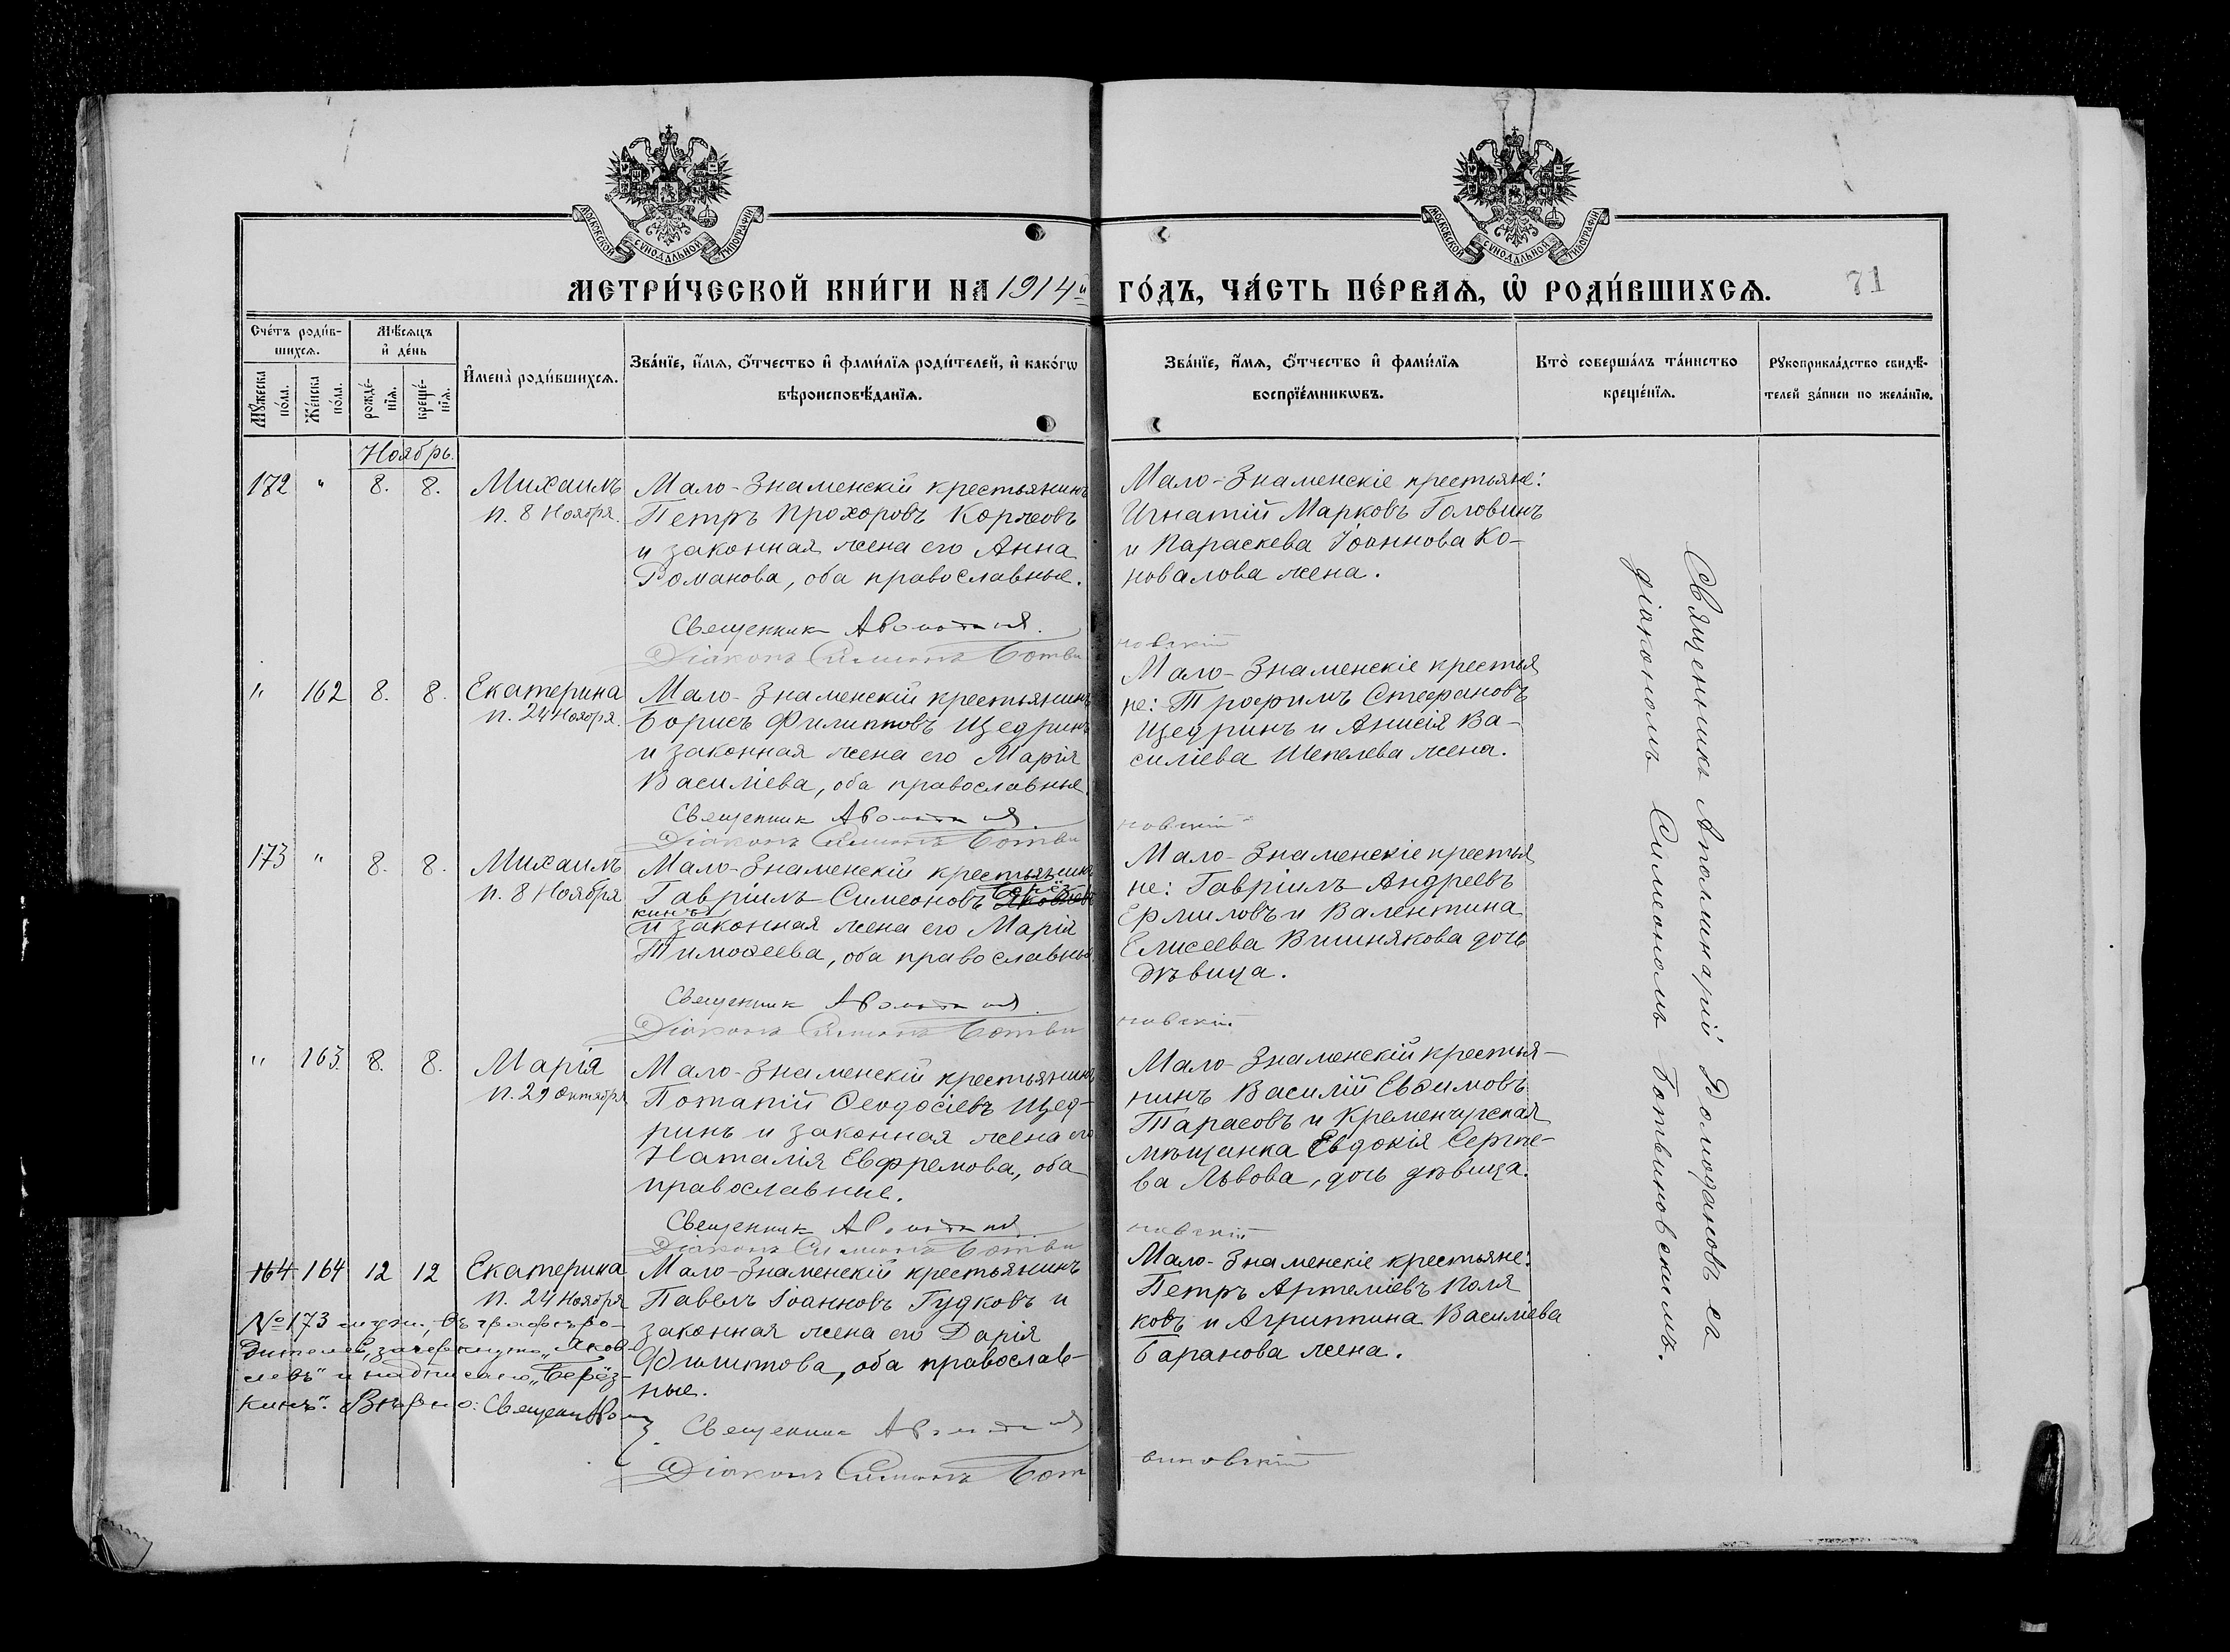 МОСКОВСКОЙ СѴНОДАЛЬНОЙ ТИПОГРАФІИ
МОСКОВСКОЙ СѴНОДАЛЬНОЙ ТИПОГРАФІИ
МЕТРИ́ЧЕСКОЙ КНИ́ГИ НА 1914й ГО́ДЪ, ЧА́СТЬ ПЕ́РВАѦ, Ѡ҆ РОДИ́ВШИХСѦ.
71
Сче́тъ роди́в-
шихсѧ.
Мѣ́сѧцъ
и҆ де́нь
Мꙋ́жеска
по́ла.
Же́нска
по́ла.
рожде́-
нїѧ.
креще́-
нїѧ.
И҆мена̀ роди́вшихсѧ.
Зва́нїе, и҆́мѧ, ѻ҆́тчество и҆ фами́лїѧ роди́телей, и҆ како́гѡ
вѣроисповѣ́данїѧ.
Зва́нїе, и҆́мѧ, ѻ҆́тчество и҆ фами́лїѧ
воспрїе́мникѡвъ.
Кто̀ соверша́лъ та́инство
креще́нїѧ.
Рꙋкоприкла́дство свидѣ́-
телей за́писи по жела́нїю.
Ноябрь.
172 " 8. 8.
Михаилъ
п. 8 Ноября.
Мало-Знаменскій крестьянинъ
Петръ Прохоровъ Коржовъ
и законная жена его Анна
Романова, оба православные.
Священник
Діаконъ Симеонъ Ботвиновскій
Мало-Знаменскіе крестьяне:
Игнатій Марковъ Головинъ
и Параскева Іоаннова Ко-
новалова жена.
" 162 8. 8.
Екатерина
п. 24 Ноября.
Мало-Знаменскій крестьянинъ
Борисъ Филипповъ Щедринъ
и законная жена его Марія
Василіева, оба православные
Священник
Діаконъ Симеонъ Ботвиновскій
Мало-Знаменскіе крестья
не: Трофимъ Стефановъ
Щедринъ и Анисія Ва-
силіева Шепелева жена.
173 " 8. 8.
Михаилъ
п. 8 Ноября
Мало-Знаменскій крестьянинъ
Гавріилъ Симеоновъ Яковлевъ Берёз-
кинъ
и законная жена его Марія
Тимоѳеева, оба православные.
Священник
Діаконъ Симеонъ Ботвиновскій
Мало-Знаменскіе крестья
не: Гавріилъ Андреевъ
Ермиловъ и Валентина
Елисеева Вишнякова дочь
дѣвица.
" 163. 8. 8.
Марія
п. 29 Октября
Мало-Знаменскій крестьянинъ
Потапій Ѳеодосіевъ Щед-
ринъ и законная жена его
Наталія Евфремова, оба
православные.
Священник
Діаконъ Симеонъ Ботвиновскій
Мало-Знаменскій крестья-
нинъ Василій Евѳимовъ
Тарасовъ и Кременчугская
мѣщанка Евдокія Сергіе-
ва Львова, дочь дѣвица.
164 164 12 12
Екатерина
п. 24 Ноября
Мало-Знаменскій крестьянинъ
Павелъ Іоанновъ Гудковъ и
законная жена его Дарія
Филиппова, оба православ-
ные.
Священник
Діаконъ Симеонъ Ботвиновскій
Мало-Знаменскіе крестьяне:
Петръ Артеміевъ Поля
ковъ и Агриппина Василіева
Баранова жена.
№173 муж., въ графѣ ро-
дителей, зачеркнуто „Яков-
левъ" и надписано „Берёз-
кинъ". Вѣрно: Священ
Священникъ Аполлинарій Ромодановъ съ
діакономъ Симеономъ Ботвиновскимъ.